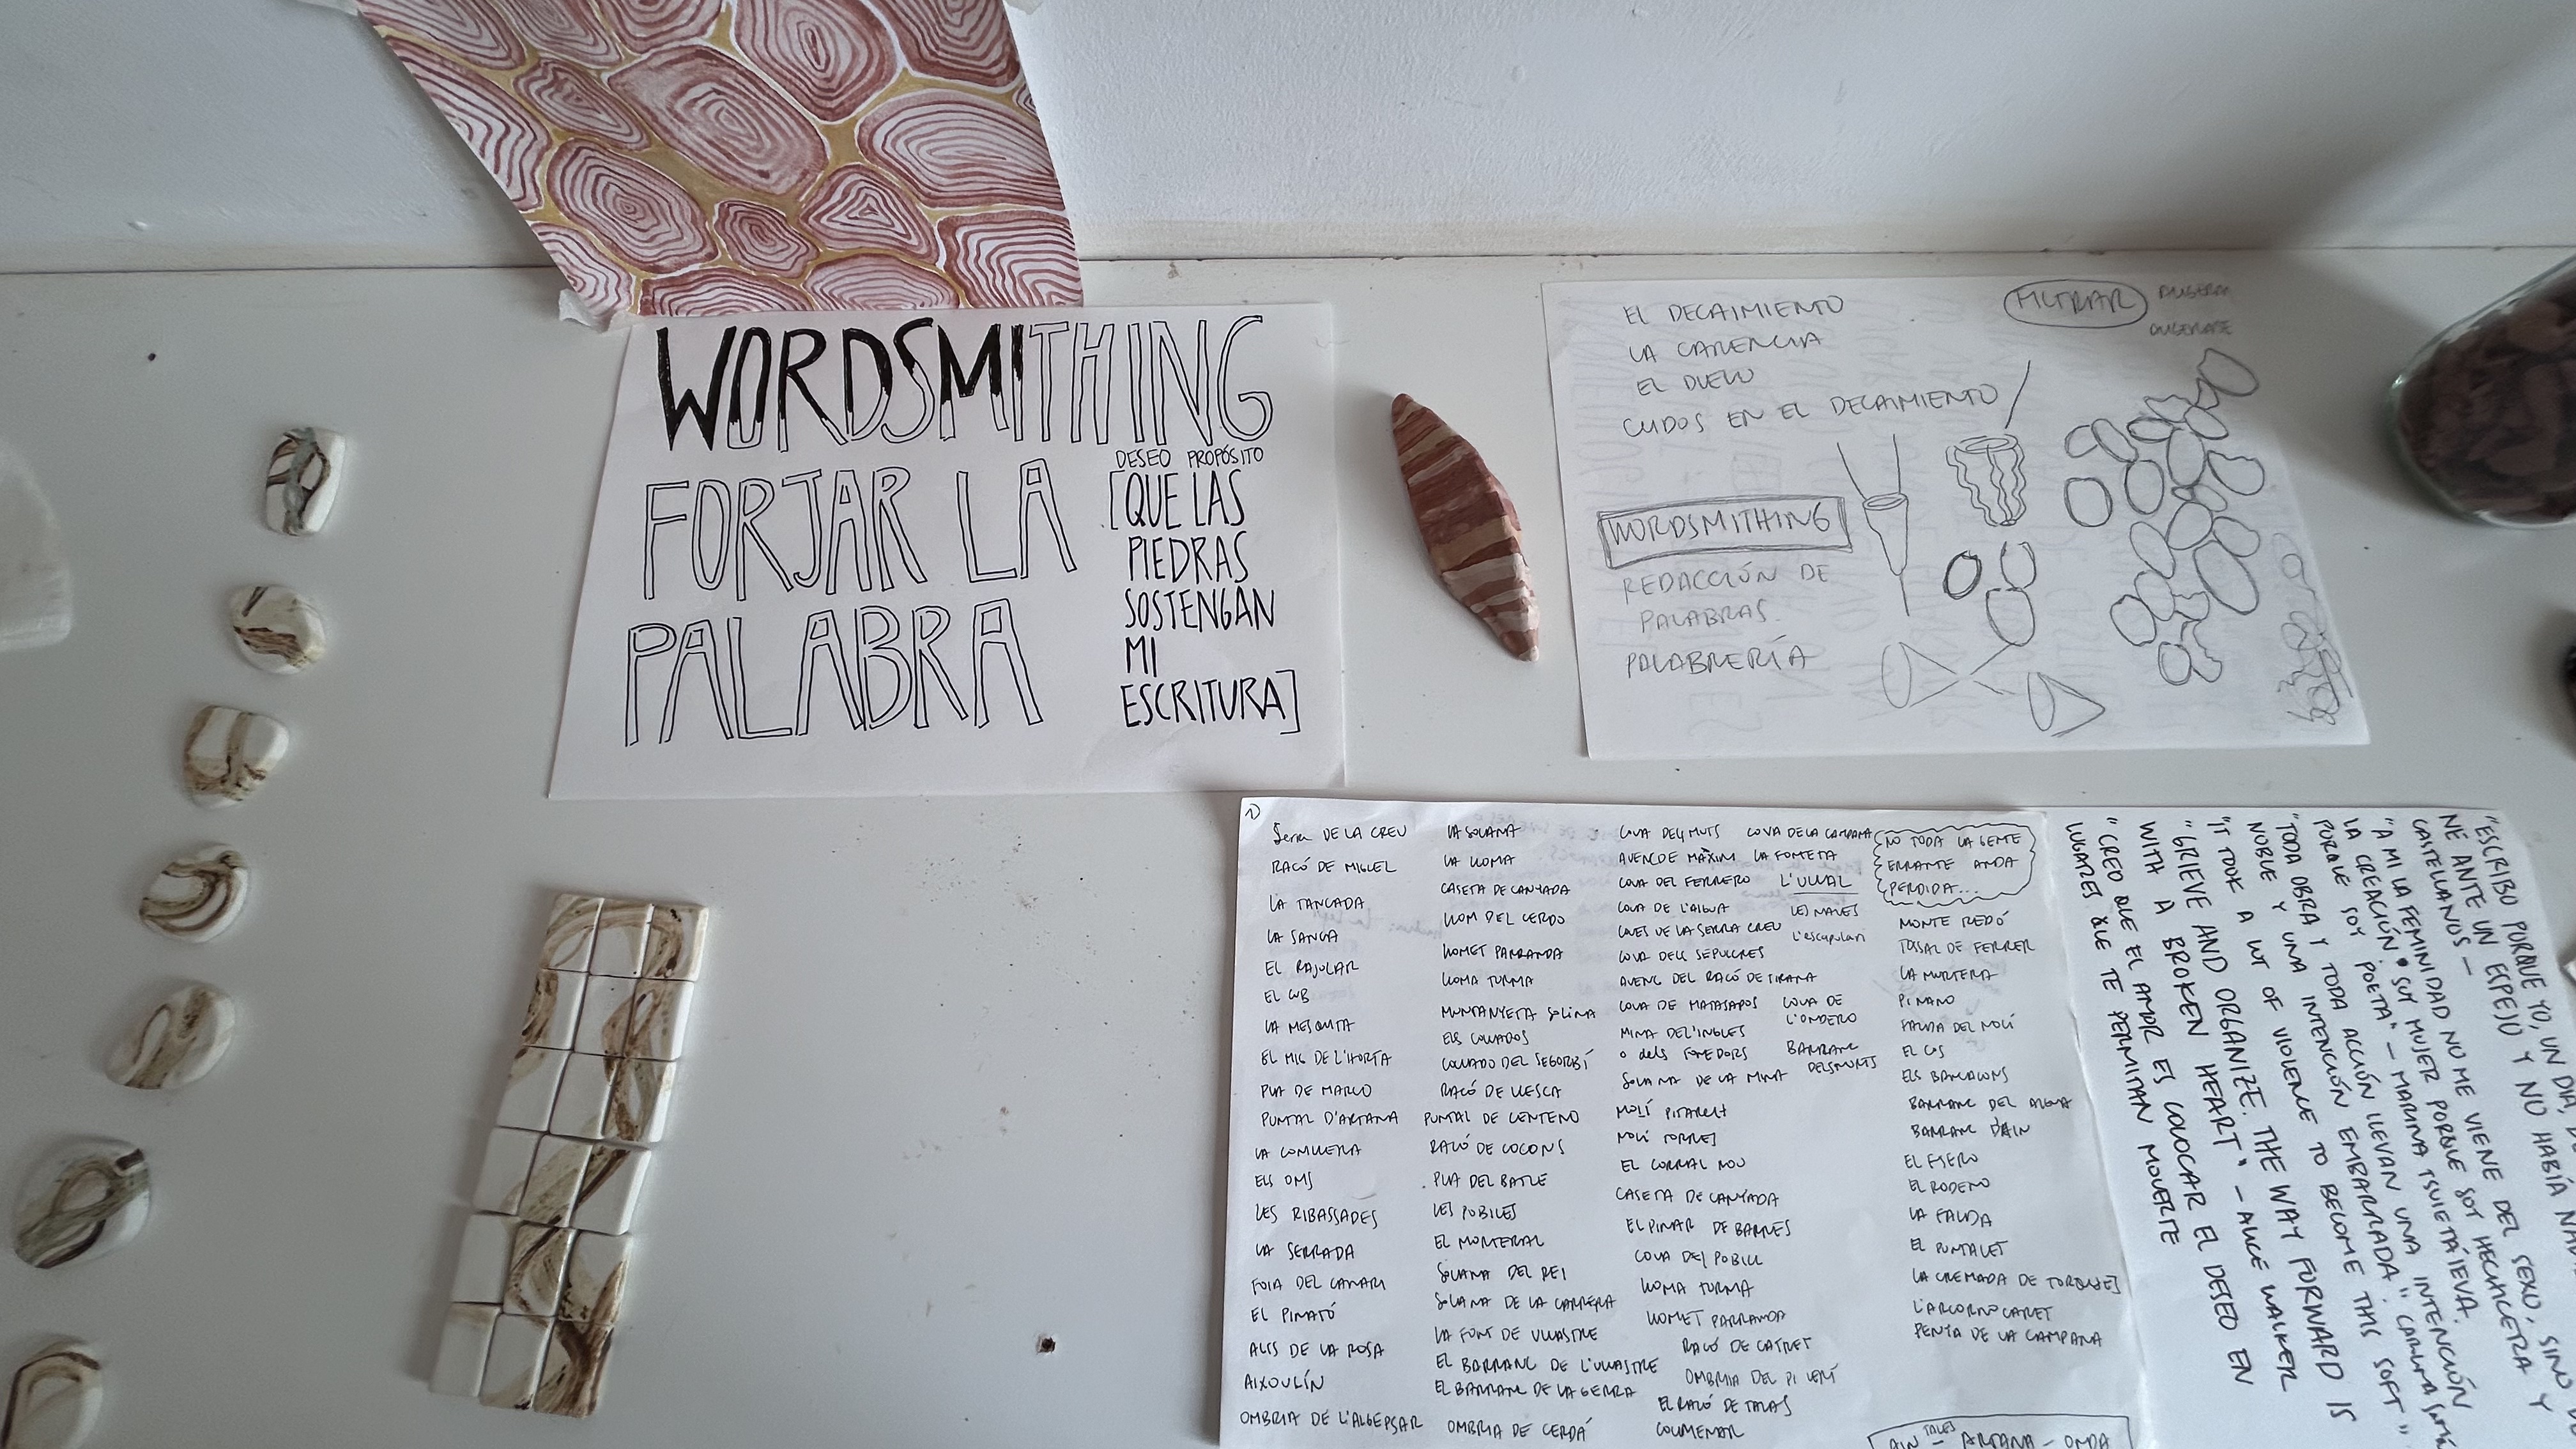 WORDSMITHING
FORJAR LA
PALABRA
DESEO PROPÓSITO
[QUE LAS
PIEDRAS
SOSTENGAN
MI
ESCRITURA]
EL DECAIMIENTO
LA CARENCIA
EL DUELO
CUDOS EN EL DECAIMIENTO
FILTRAR
WORDSMITHING
REDACCIÓN DE
PALABRAS.
PALABRERÍA
1)
Serra DE LA CREU
RACÓ DE MIGUEL
LA TANCADA
LA SANGA
EL RAJOLAR
EL CUB
LA MESQUITA
EL MIG DE L'HORTA
PLA DE MARCO
PUNTAL D'ARTANA
LA COMUERA
ELS OMS
LES RIBASSADES
LA SERRADA
FOIA DEL CANARI
EL PINATÓ
ALTS DE LA ROSA
AIXOULÍN
OMBRIA DE L'ALGEPSAR
LA SOLANA
LA LLOMA
CASETA DE CANYADA
LLOM DEL CERDO
LLOMET PARRANDA
LLOMA TURMA
MUNTANYETA SOLINA
ELS COLLADOS
COLLADO DEL SEGORBÍ
RACÓ DE LLESCA
PUNTAL DE CENTENO
RACÓ DE COCONS
PLA DEL BATLE
LES POBILES
EL MORTERAL
SOLANA DEL REI
SOLANA DE LA CARRERA
LA FONT DE ULLASTRE
EL BARRANC DE L'ULLASTRE
EL BARRANC DE LA GERRA
OMBRIA DE CERDÁ
COVA DELS MUTS
AVENC DE MÀXIM
COVA DEL FERRERO
COVA DE L'AIGUA
COVES DE LA SERRA CREU
COVA DELS SEPULCRES
AVENC DEL RACÓ DE TIRANA
COVA DE MATASAPOS
MINA DE L'INGLES
o dels FONEDORS
SOLANA DE LA MINA
MOLÍ PITARCH
MOLÍ TORRES
EL CORRAL NOU
CASETA DE CANYADA
EL PINAR DE BARRES
COVA DEL POBILL
LLOMA TURMA
LLOMET PARRANDA
RACÓ DE CATRET
OMBRIA DEL PI VERÍ
EL RACÓ DE TALAS
COLMENAR
COVA DE LA CAMPANA
LA FOMETA
L'ULLAL
LES NALES
L'escapulari
COVA DE
L'ONDERO
BARRANC
DELS MUTS
NO TODA LA GENTE
ERRANTE ANDA
PERDIDA...
MONTE REDÓ
TOSSAL DE FERRER
LA MURTERA
PINARO
FALDA DEL MOLÍ
EL COS
ELS BANCALONS
BARRANC DEL AIGUA
BARRANC D'AIN
EL FSERO
EL RODENO
LA FALDA
EL PUNTALET
LA CREMADA DE TORQUES
L'ARCORNOCARET
PENYA DE LA CAMPANA
AIN TALES – ARTANA – ONDA
"ESCRIBO PORQUE YO, UN DÍA,
NÉ ANTE UN ESPEJO Y NO HABÍA
CASTELLANOS —
"A MI LA FEMINIDAD NO ME VIENE DEL SEXO, SINO DE
LA CREACIÓN. SOY MUJER PORQUE SOY HECHICERA Y
PORQUE SOY POETA" — MARINA TSVIETÁIEVA.
"TODA OBRA Y TODA ACCIÓN LLEVAN UNA INTENCIÓN
NOBLE Y UNA INTENCIÓN EMBARRADA."
"IT TOOK A LOT OF VIOLENCE TO BECOME THIS SOFT"
"GRIEVE AND ORGANIZE. THE WAY FORWARD IS
WITH A BROKEN HEART" – ALICE WALKER
"CREO QUE EL AMOR ES COLOCAR EL DESEO EN
LUGARES QUE TE PERMITAN MOVERTE